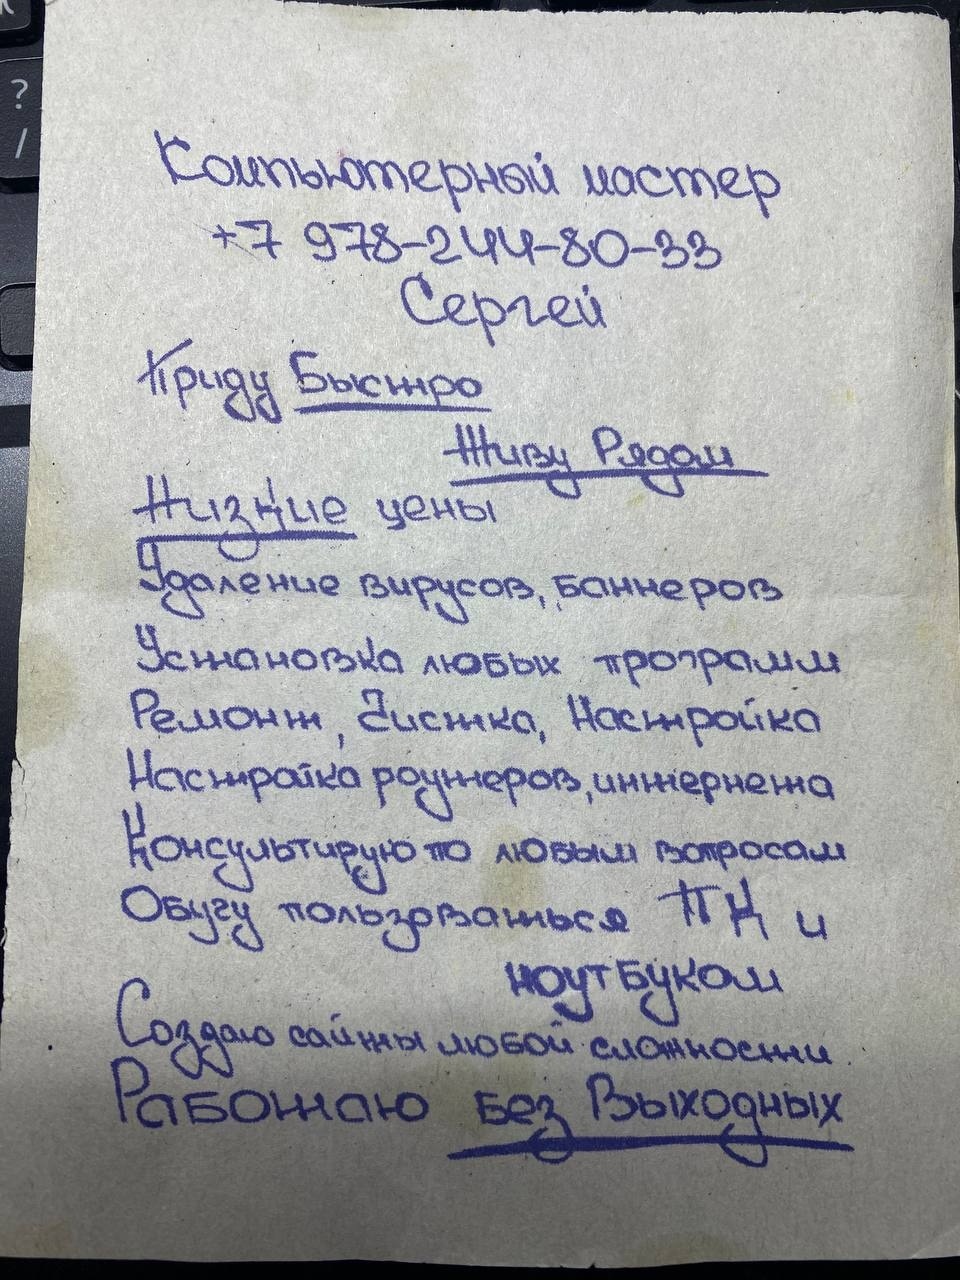 Компьютерный мастер
+7 978-244-80-33
Сергей
Приду Быстро
Живу Рядом
Низкие цены
Удаление вирусов, баннеров
Установка любых программ
Ремонт, Чистка, Настройка
Настройка роутеров, интернета
Консультирую по любым вопросам
Обучу пользоваться ПК и
ноутбуком
Создаю сайты любой сложности
Работаю без Выходных
?
/